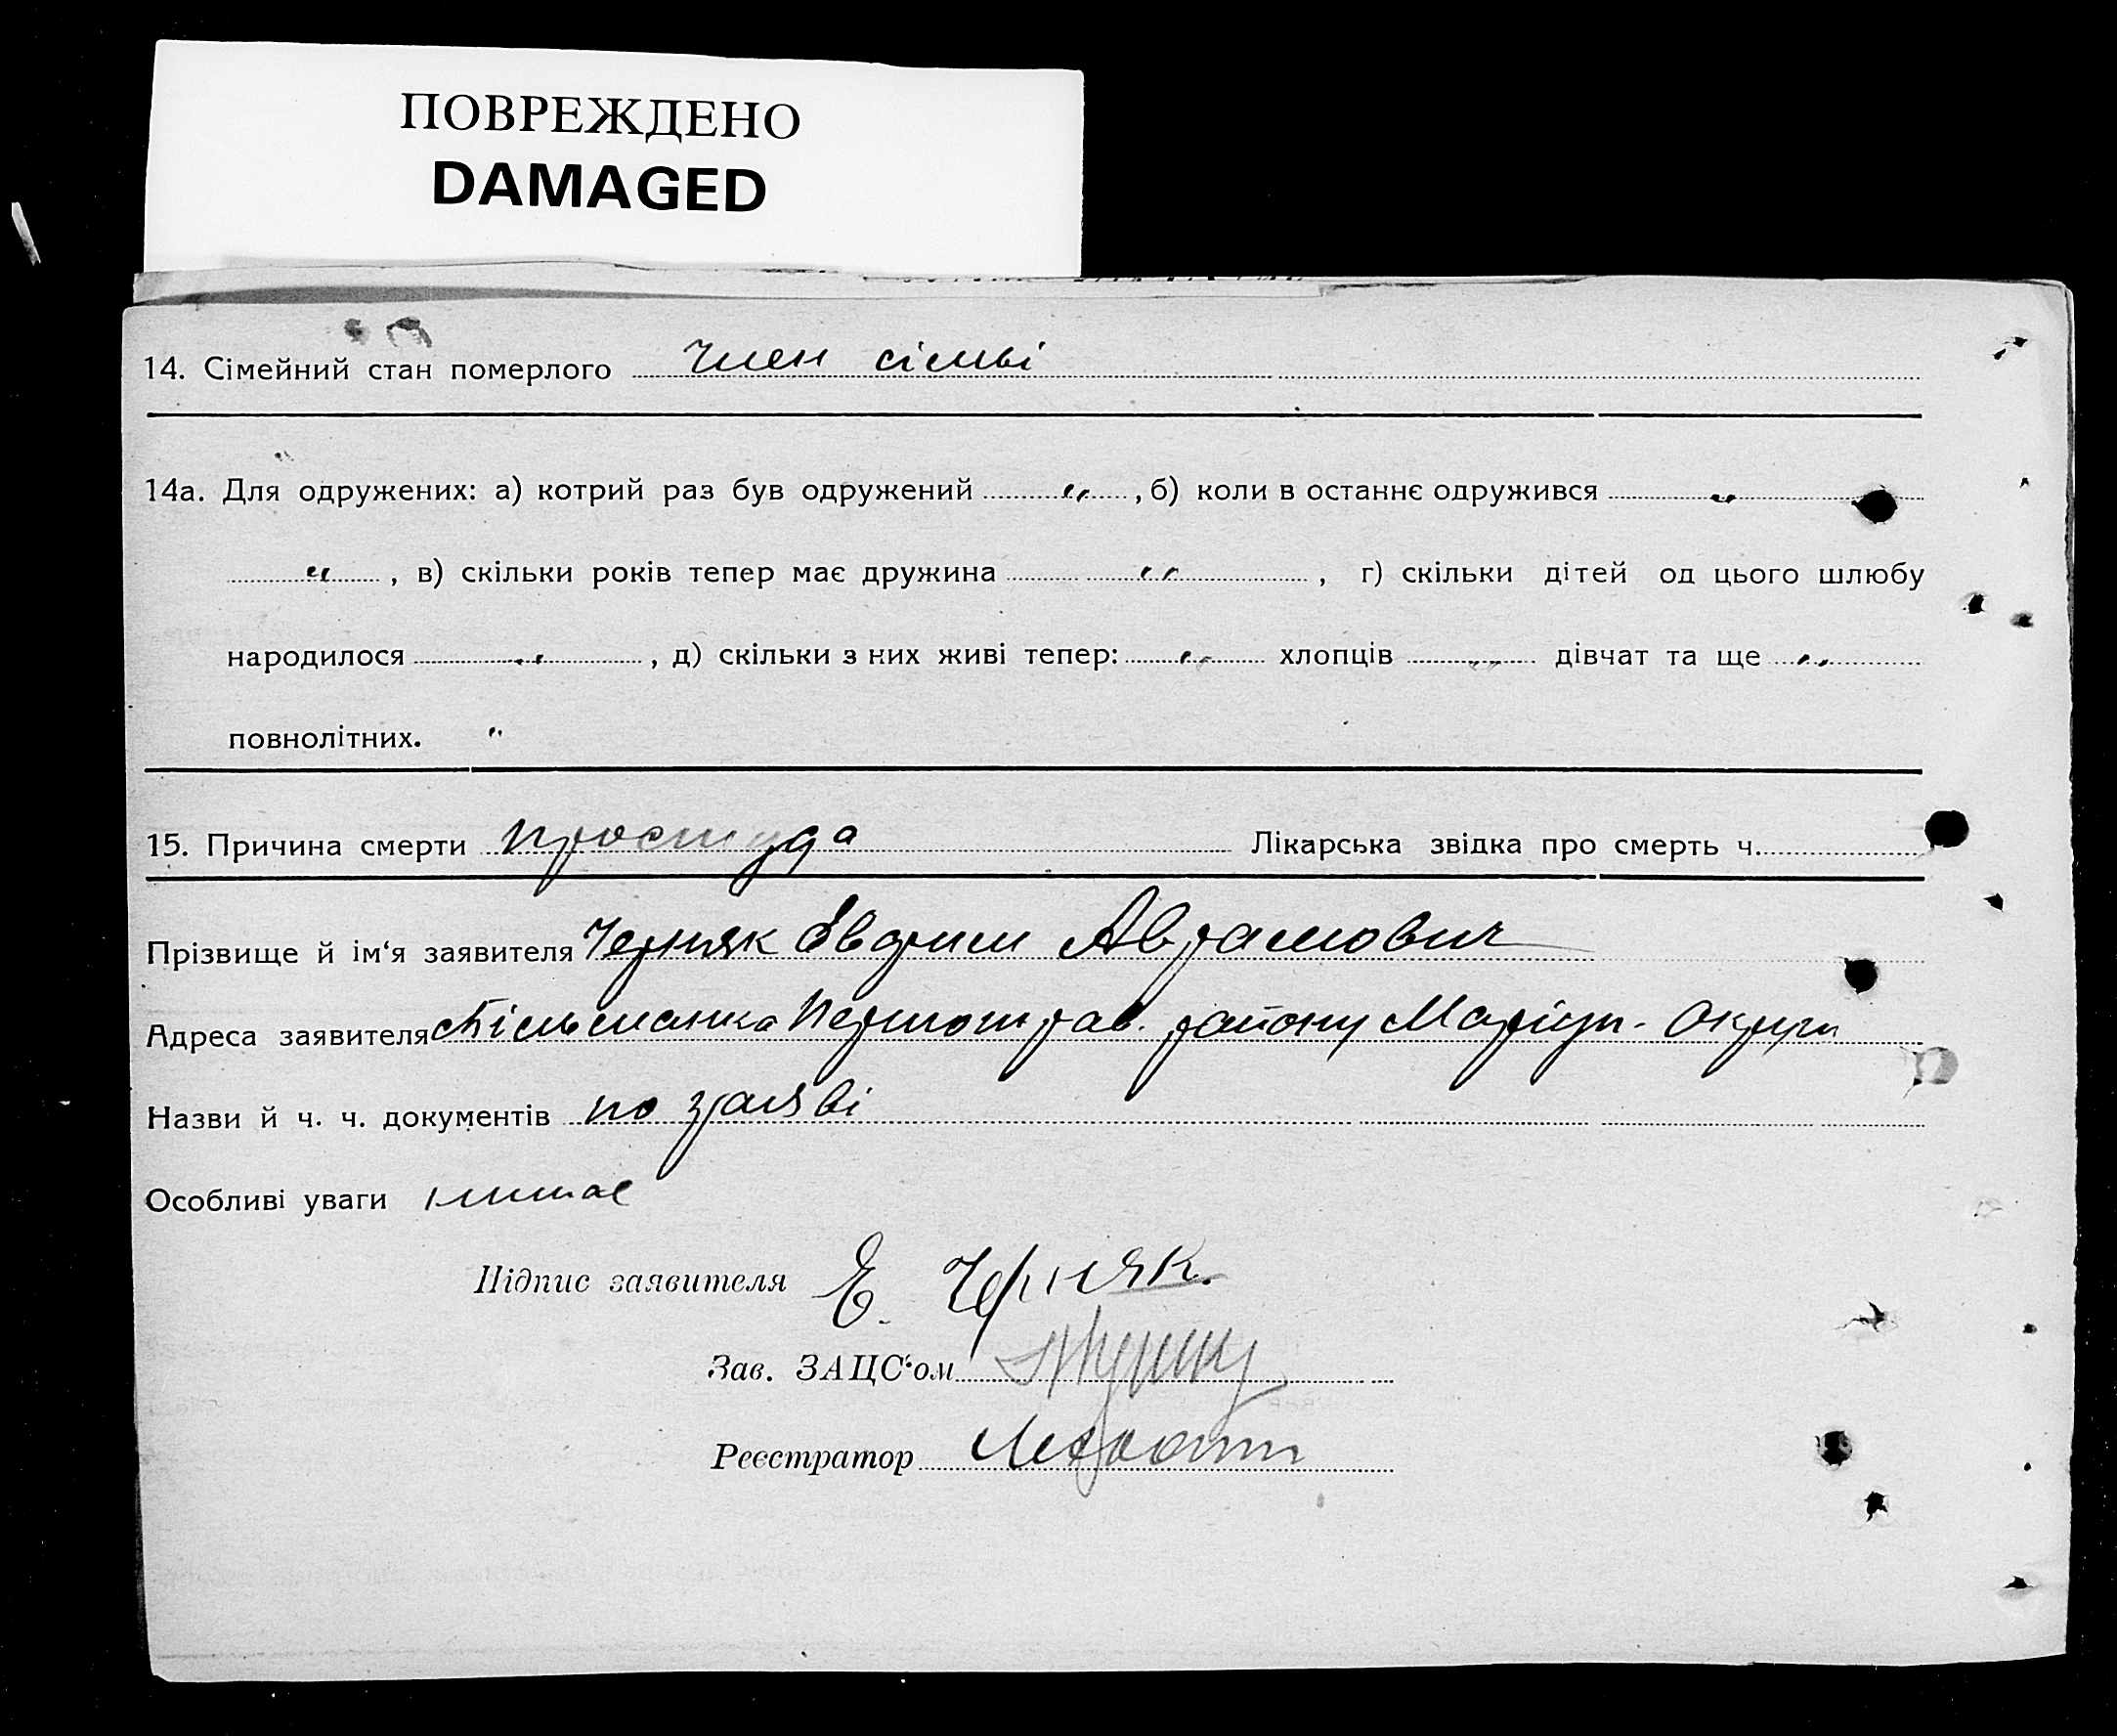 ПОВРЕЖДЕНО
DAMAGED
14. Сімейний стан померлого член сімьі
14а. Для одружених: а) котрий раз був одружений „ , б) коли в останнє одружився „
„ , в) скільки років тепер має дружина „ , г) скільки дітей од цього шлюбу
народилося „ , д) скільки з них живі тепер: „ хлопців „ дівчат та ще „
повнолітних. „
15. Причина смерти простуда Лікарська звідка про смерть ч.
Прізвище й ім‘я заявителя Черняк Аврамович
Адреса заявителя Першотрав. району Маріуп. Округи
Назви й ч. ч. документів по заяві
Особливі уваги
Підпис заявителя Е. Черняк.
Зав. ЗАЦС‘ом
Реєстратор